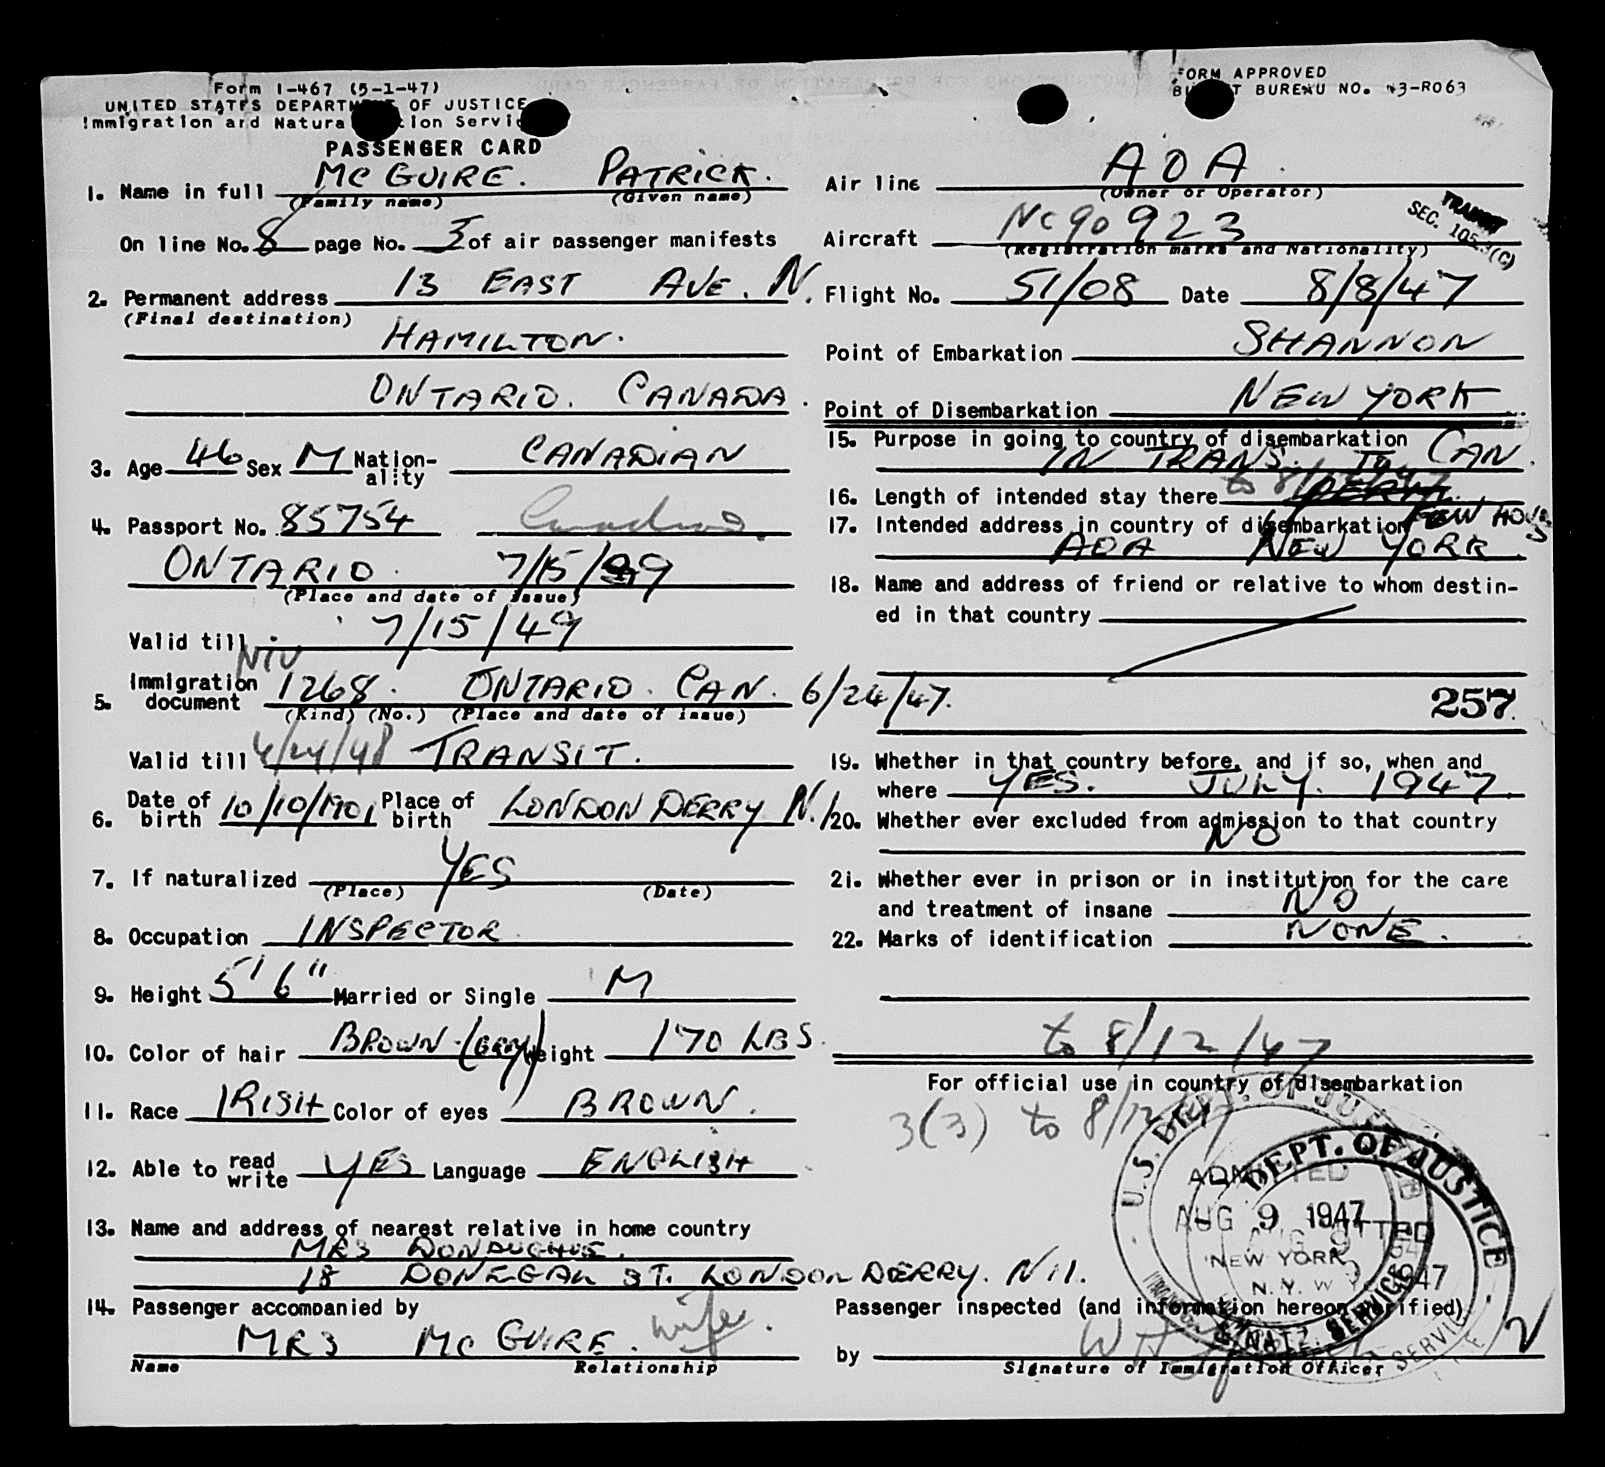 Form I-467 (5-1-47)
UNITED STATES DEPARTMENT OF JUSTICE
Immigration and Naturalization Service
PASSENGER CARD
FORM APPROVED
BUDGET BUREAU NO. 43-R063
1. Name in full MC GUIRE. PATRICK.
(Family name) (Given name)
On line No. 8 page No. 3 of air passenger manifests
2. Permanent address 13 EAST AVE. N.
(Final destination)
HAMILTON.
ONTARIO. CANADA.
3. Age 46 Sex M Nation-ality CANADIAN
4. Passport No. 85754 Canadian
ONTARIO. 7/15/39
(Place and date of issue)
Valid till 7/15/49
NIV
5. Immigration document 1268. ONTARIO. CAN. 6/24/47.
(Kind) (No.) (Place and date of issue)
Valid till 6/24/48 TRANSIT.
6. Date of birth 10/10/1901 Place of birth LONDON DERRY N.I.
7. If naturalized YES
(Place) (Date)
8. Occupation INSPECTOR
9. Height 5' 6" Married or Single M
10. Color of hair BROWN-(GRAY) Weight 170 LBS.
11. Race IRISH Color of eyes BROWN.
12. Able to read write YES Language ENGLISH
13. Name and address of nearest relative in home country
MRS DONOUGHUE.
18 DONEGAL ST. LONDON DERRY. N.I.
14. Passenger accompanied by
MRS MC GUIRE. wife.
Name Relationship
Air line AOA
(Owner or Operator)
TRANSIT
SEC.
Aircraft NC90923
(Registration marks and Nationality)
Flight No. 51/08 Date 8/8/47
Point of Embarkation SHANNON
Point of Disembarkation NEW YORK
15. Purpose in going to country of disembarkation
IN TRANS. TO CAN.
16. Length of intended stay there to 8/12/47
FEW HOURS
17. Intended address in country of disembarkation
AOA NEW YORK
18. Name and address of friend or relative to whom destin-
ed in that country
257
19. Whether in that country before, and if so, when and
where YES. JULY. 1947.
20. Whether ever excluded from admission to that country
NO
21. Whether ever in prison or in institution for the care
and treatment of insane NO
22. Marks of identification NONE.
to 8/12/47
For official use in country of disembarkation
3(3) to 8/12/47
U.S. DEPT. OF JUSTICE
DEPT. OF JUSTICE
ADMITTED
AUG 9 1947
NEW YORK
N.Y.
Passenger inspected (and information hereon verified)
by
Signature of Immigration Officer